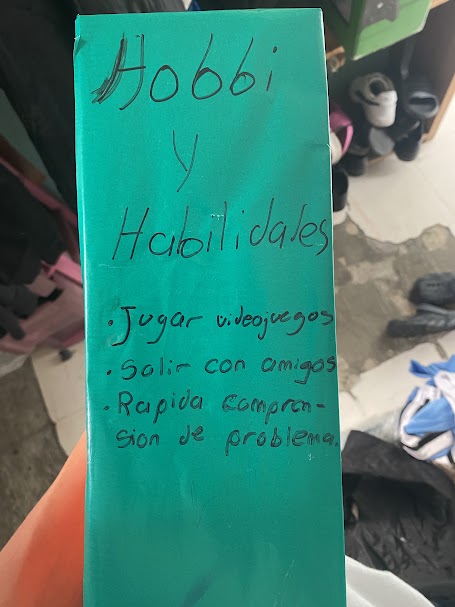 Hobbi
y
Habilidades
· Jugar videojuegos
· Salir con amigos
· Rapida compren-
sion de problema.